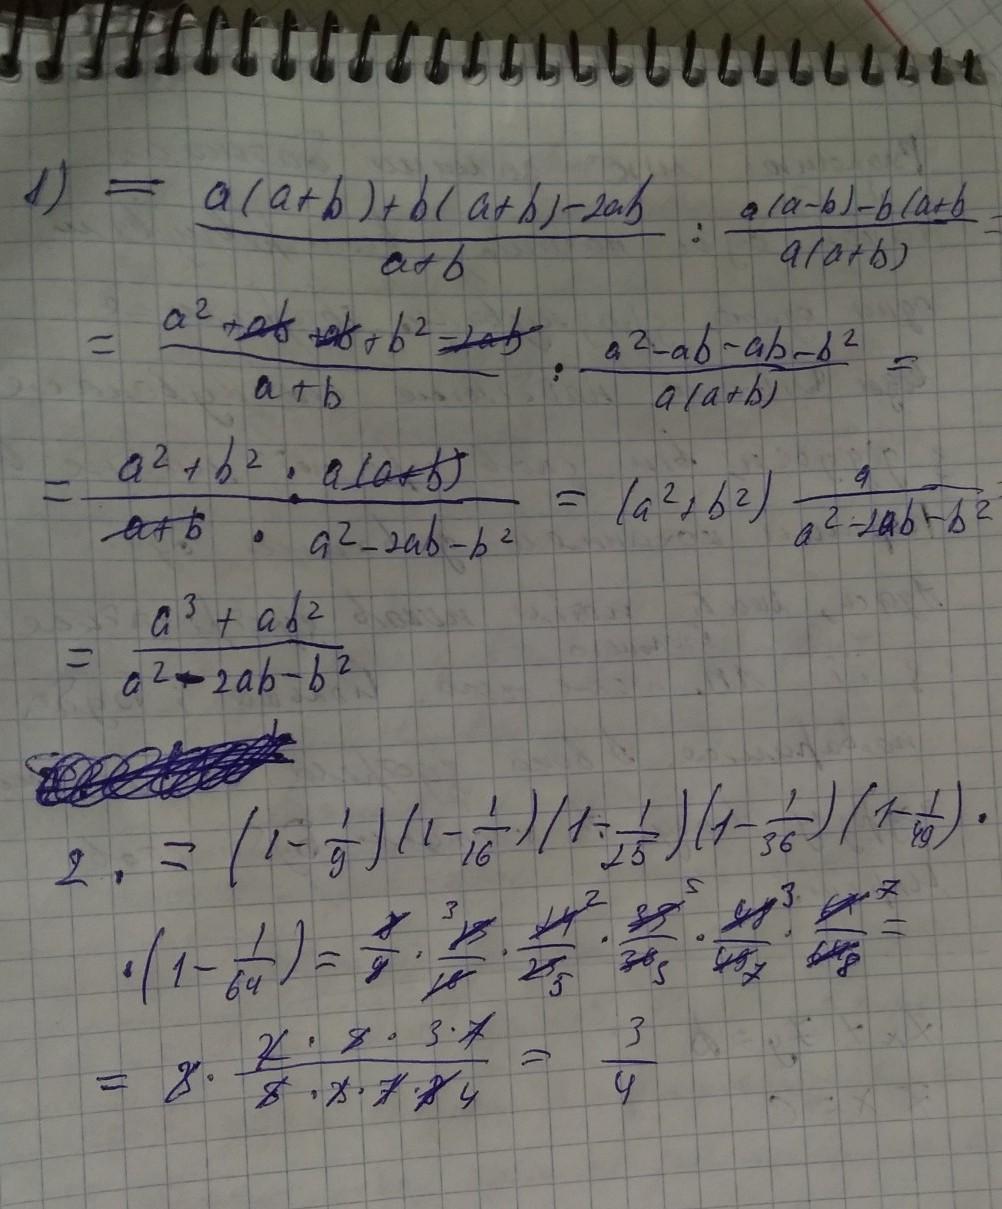 1) = (a(a+b)+b(a+b)-2ab)/(a+b) : (a(a-b)-b(a+b)/(a(a+b)) =
= (a² + ab + ab + b² - 2ab)/(a+b) : (a²-ab-ab-b²)/(a(a+b)) =
= (a² + b² · a(a+b))/(a+b · a²-2ab-b²) = (a²+b²) a/(a²-2ab-b²)
= (a³ + ab²)/(a²-2ab-b²)
2. = (1 - 1/9)(1 - 1/16)(1 - 1/25)(1 - 1/36)(1 - 1/49) ·
· (1 - 1/64) = 8/9 · 15/16 · 24/25 · 35/36 · 48/49 · 63/64 =
= 8 · = 3/4